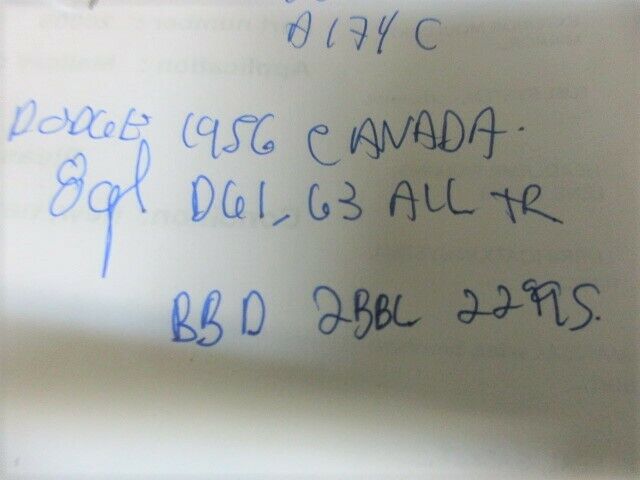 A174C
DODGE 1956 CANADA.
8cyl DG1, G3 ALL TR
BBD 2BBL 2299S.